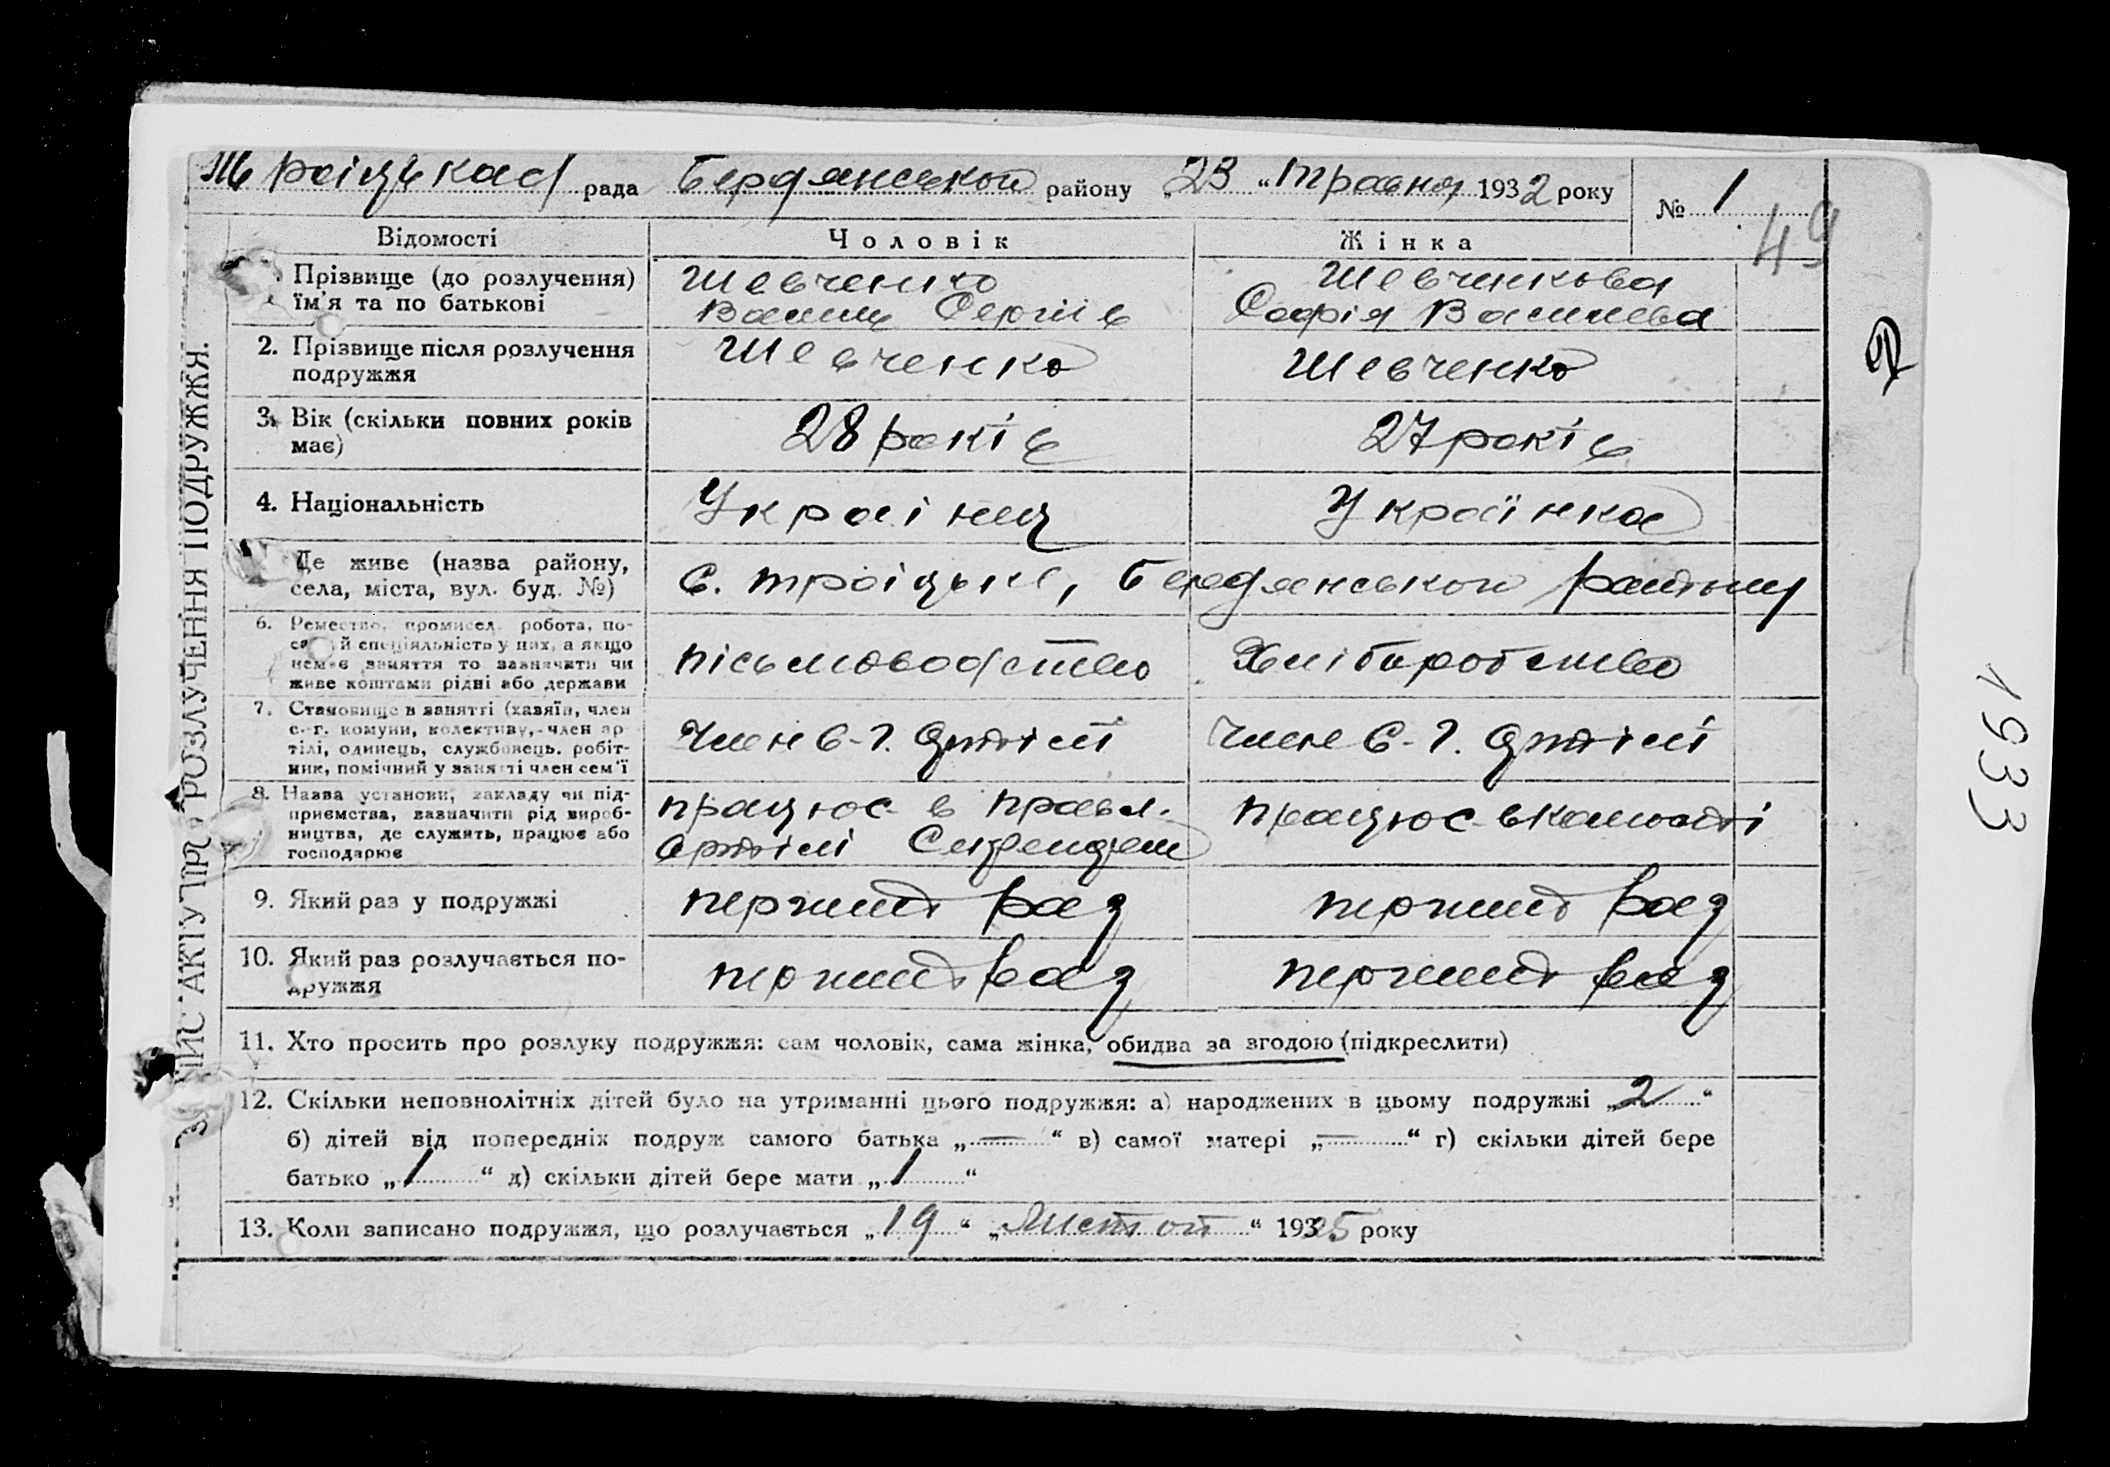 Троіцька с/ рада Бердянськои району „23 “ травня 1932 року
№ 1
49
Відомості Чоловік Жінка
Прізвище (до розлучення) Шевченко Шевченкова
ім'я та по батькові Василь Сергіів Софія Василева
2. Прізвище після розлучення Шевченко Шевченко
подружжя
3. Вік (скільки повних років 28 років 27 років
має)
4. Національність Украінець Українка
Де живе (назва району, с. Троіцьке, Бердянськои району
села, міста, вул. буд. №)
6. Ремество, промисел, робота, по-
сада й спеціяльність у них, а якщо
немає заняття то зазначити чи письмоводство Хліборобство
живе коштами рідні або держави
7. Становище в занятті (хазяїн, член
с.-г. комуни, колективу, член ар-
тілі, одинець, службовець, робіт- Член С-Г. Артілі Член С-Г. Артілі
ник, помічний у занятті член сем'ї
8. Назва установи, закладу чи під- працює в правл. працює в
приємства, зазначити рід вироб-
ництва, де служить, працює або Артілі
господарює
9. Який раз у подружжі перший раз перший раз
10. Який раз розлучається по- перший раз перший раз
дружжя
11. Хто просить про розлуку подружжя: сам чоловік, сама жінка, обидва за згодою (підкреслити)
12. Скільки неповнолітніх дітей було на утриманні цього подружжя: а) народжених в цьому подружжі „2“
б) дітей від попередніх подруж самого батька „—“ в) самої матері „—“ г) скільки дітей бере
батько „1“ д) скільки дітей бере мати „1“
13. Коли записано подружжя, що розлучається „19“ „Листоп“ 1925 року
ЗАПИС АКТУ ПРО РОЗЛУЧЕННЯ ПОДРУЖЖЯ.
1933